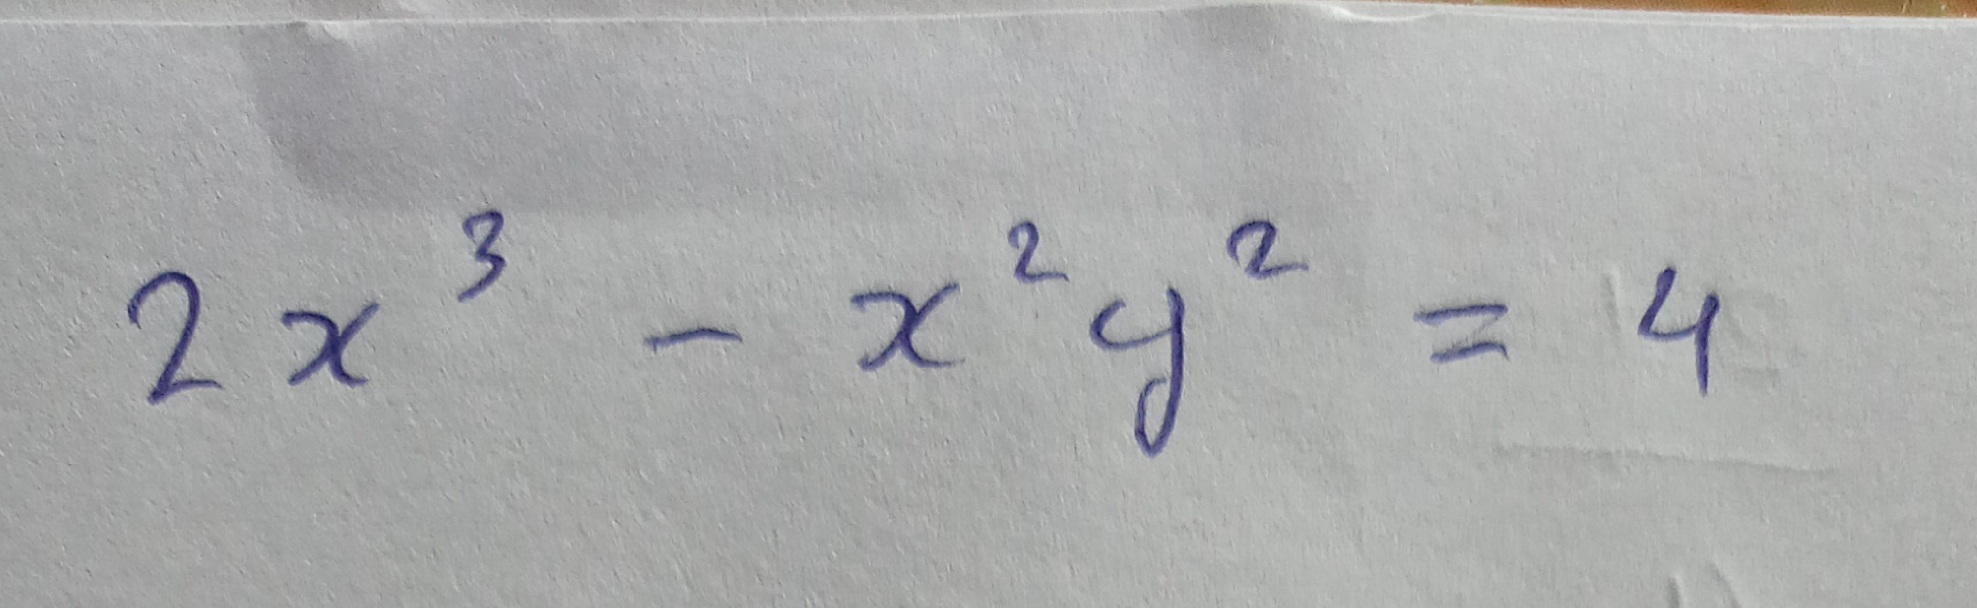 2x³ - x²y² = 4